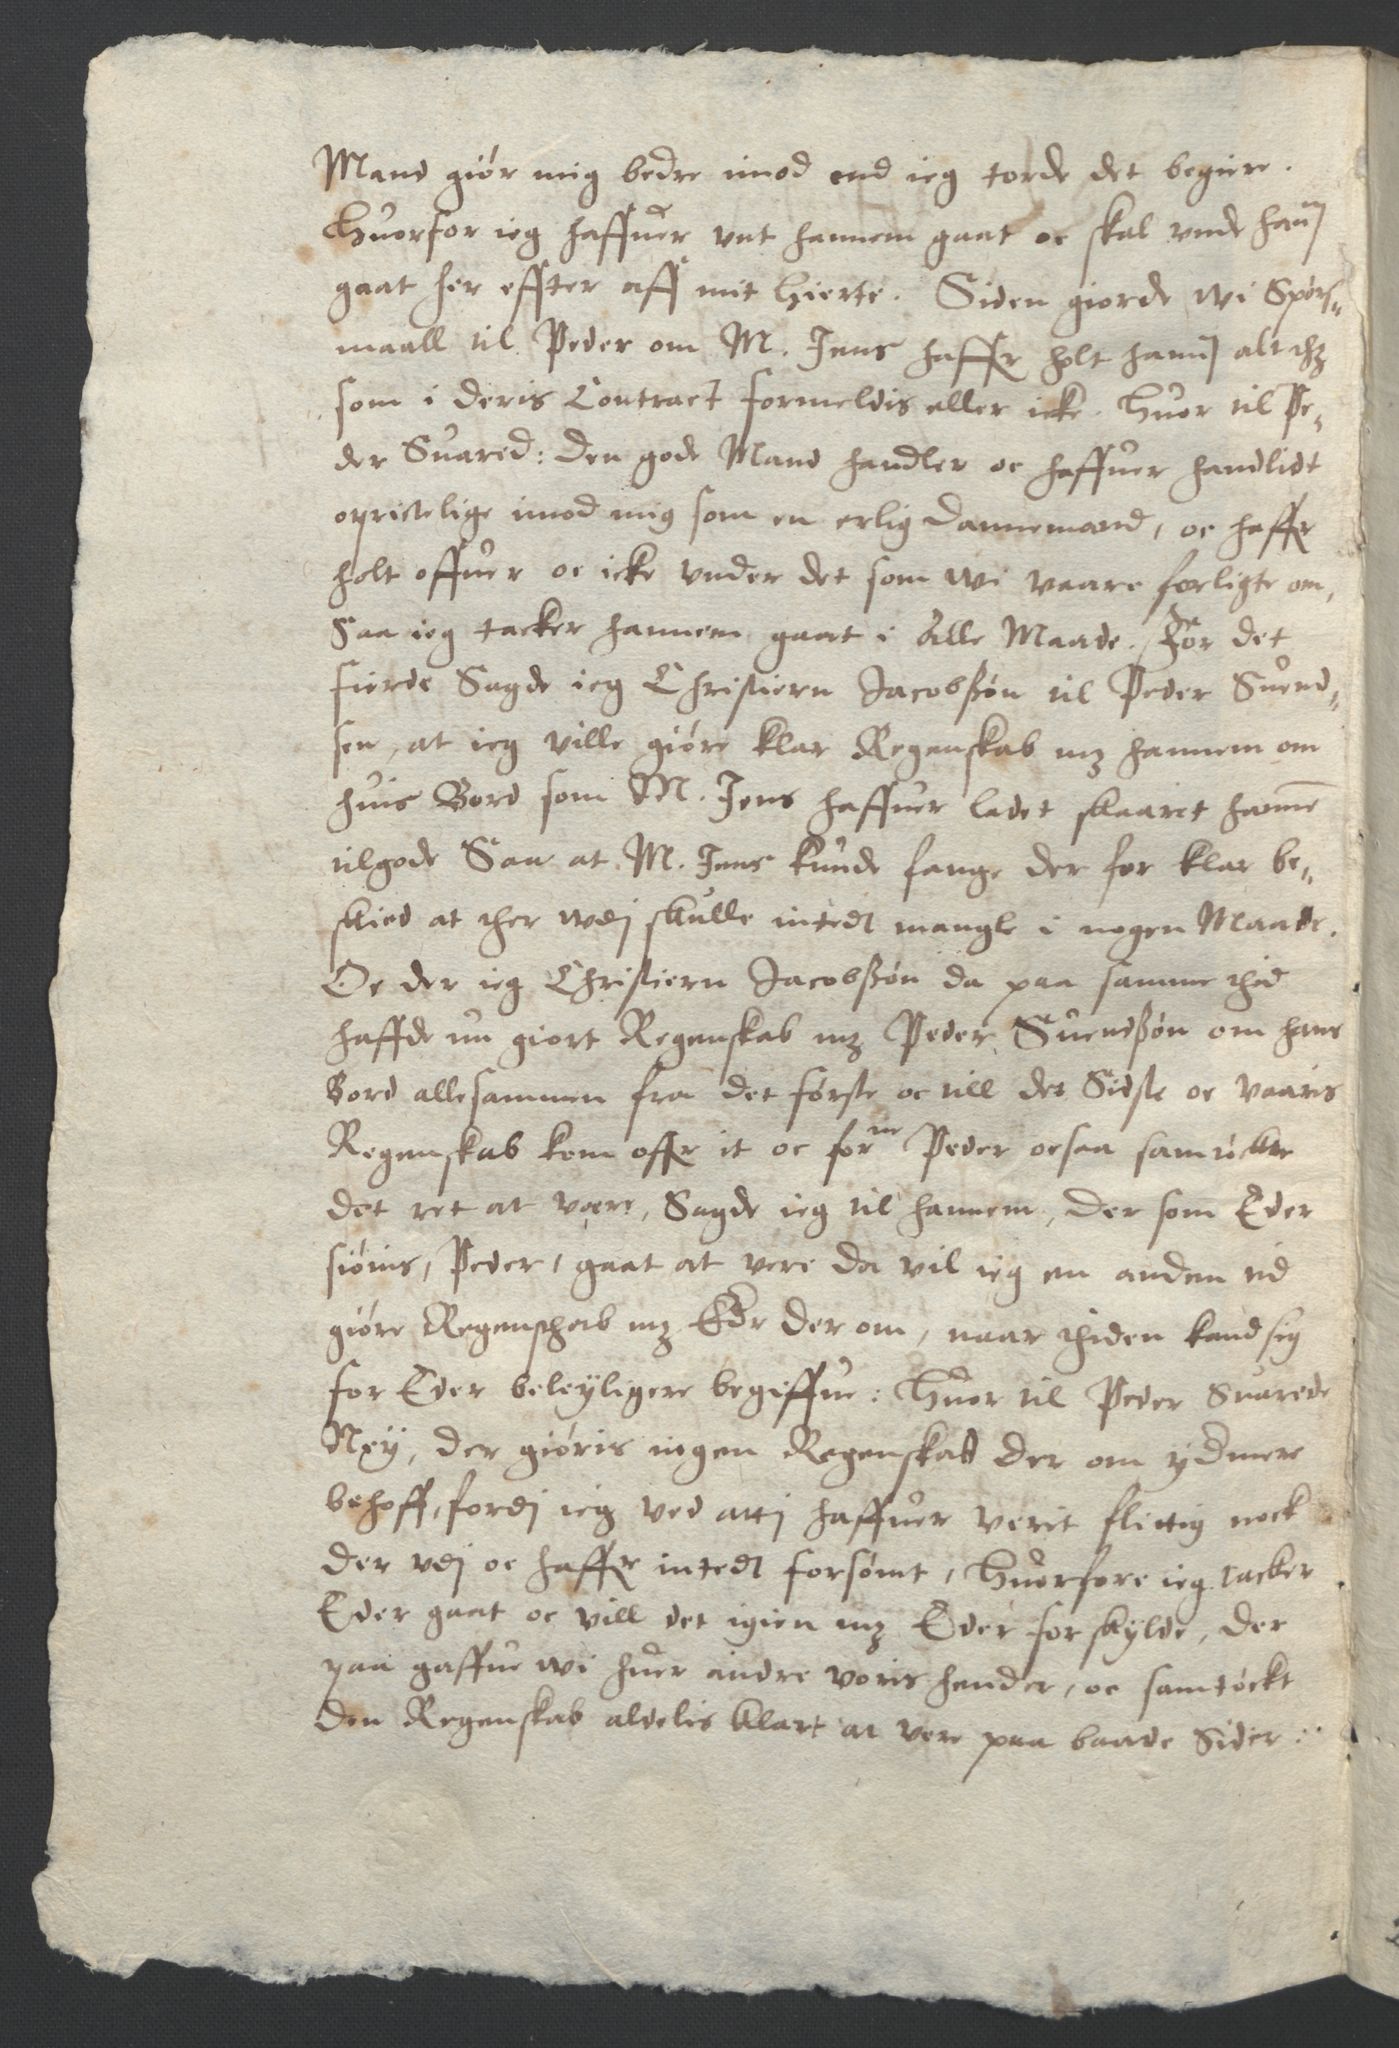 Mand giör mig bedre imod end ieg torde det begiere.
Huorfor ieg haffuer vnt hannem gaat oc skal vnde hañ
gaat her effter aff mit hierte. Siden giorde wi Spörs„
maall til Peder om M. Jens haffr holt hanñ alt thz
som i deris Contract formeldis eller icke. Huor til Pe„
der Suared: Den gode Mand handler oc haffuer handlidt
oprictelige imod mig som en erlig Dannemand, oc haffr
holt offuer oc icke vnder det som wi vaare forligte om,
Saa ieg tacker hannem gaat i Alle Maade. For det
fierde Sagde ieg Christiern Jacobßön til Peder Suend„
sen, at ieg ville giöre klar Regenskab mz hannem om
huis Bord som M. Jens haffuer ladet skaaret hannē
tilgode Saa at M. Jens kunde fange der for klar be„
skied at ther wdj skulle intedt mangle i nogen Maade.
Oc der ieg Christiern Jacobßön da paa samme thid
haffde nu giort Regenskab mz Peder Suendßön om hans
Bord allesammen fra det förste oc till det Sidste oc vaaris
Regenskab kom offr it oc forne Peder ocsaa samtöckte
det ret at være, Sagde ieg til hannem, Der som Eder
siönis, Peder, gaat at vere da vil ieg en anden tid
giöre Regenschab mz Edr der om, naar thiden kand sig
for Eder beleÿligere begiffue: Huor til Peder Suarede
Neÿ, der giöris ingen Regenskab der om ÿdmere
behoff, fordj ieg ved attj haffuer verit flittig nock
der vdj oc haffr intedt forsömt, Huorfore ieg tacker
Eder gaat oc vill det igien mz Eder forskylde, der
paa gaffue wi huer andre voris hender, oc samtöckt
den Regenskab aldelis klart at vere paa baade Sider: